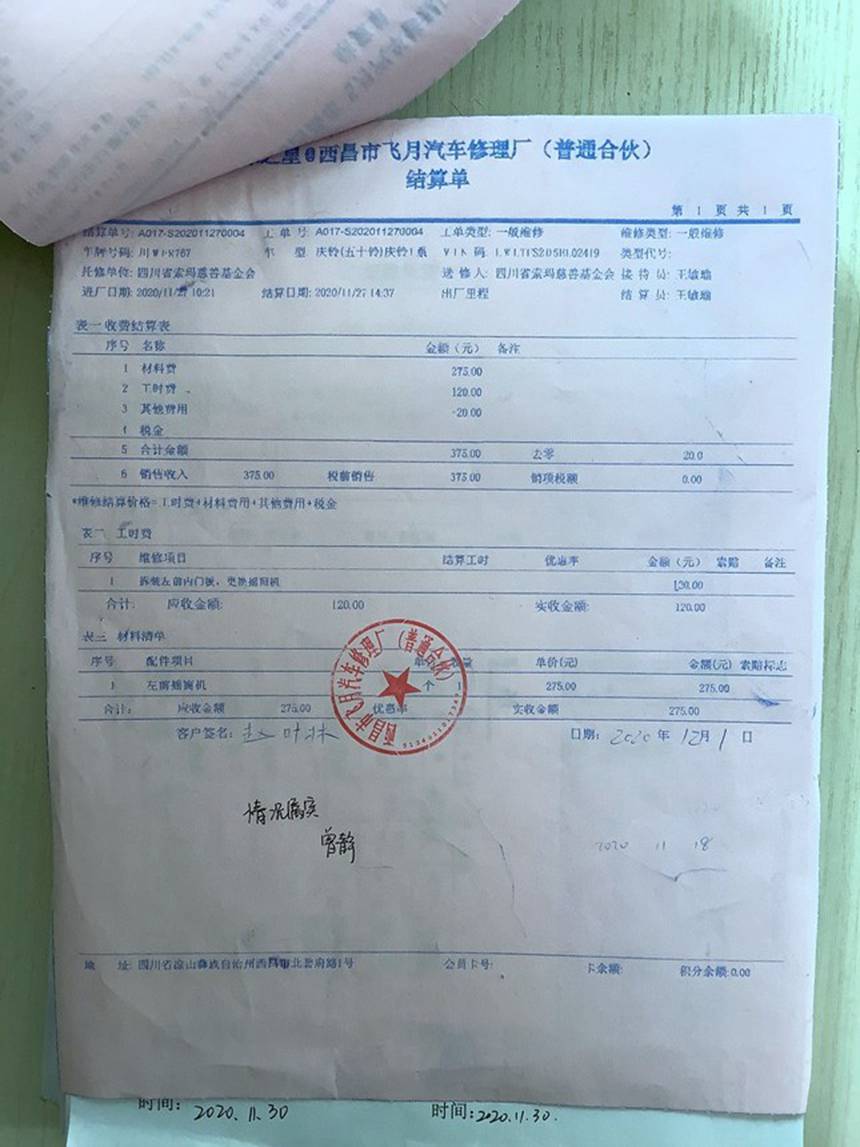 西昌市飞月汽车修理厂（普通合伙）
结算单
第 1 页 共 1 页
结算单号: A017-S202011270004 工单号: A017-S202011270004 工单类型: 一般维修 维修类型: 一般维修
车牌号码: 车型 庆铃(五十铃)庆铃 VIN码: 类型代号:
托修单位: 四川省索玛慈善基金会 送修人: 四川省索玛慈善基金会 接待员: 王敏瑜
进厂日期: 2020/11/27 10:21 结算日期: 2020/11/27 14:37 出厂里程 结算员: 王敏瑜
表一 收费结算表
序号 名称 金额（元） 备注
1 材料费 275.00
2 工时费 120.00
3 其他费用 -20.00
4 税金
5 合计金额 375.00 去零 20.0
6 销售收入 375.00 税前销售 375.00 销项税额 0.00
*维修结算价格=工时费+材料费用+其他费用+税金
表二 工时费
序号 维修项目 结算工时 优惠率 金额（元） 索赔 备注
1 拆装左前内门板，更换摇窗机 120.00
合计: 应收金额: 120.00 实收金额: 120.00
表三 材料清单
序号 配件项目 单位 数量 单价(元) 金额(元) 索赔标志
1 左前摇窗机 个 1 275.00 275.00
合计: 应收金额 275.00 优惠率 实收金额 275.00
客户签名: 日期: 2020年12月1日
西昌市飞月汽车修理厂（普通合伙）
情况属实
曾静
2020 11 18
地 址: 四川省凉山彝族自治州西昌市北碧府路1号 会员卡号: 卡余额: 积分余额:0.00
时间: 2020.11.30 时间: 2020.11.30.